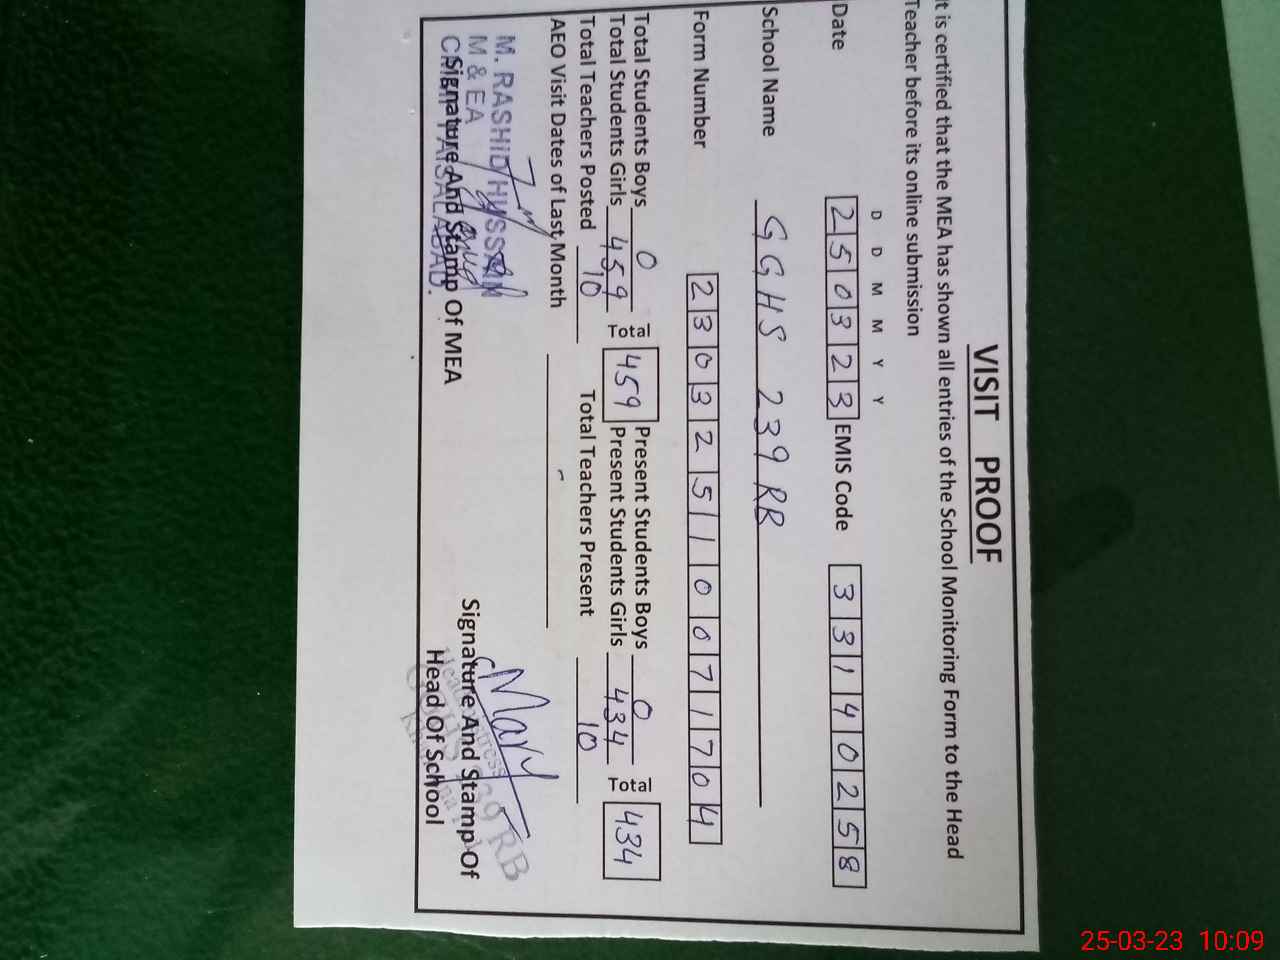 VISIT PROOF
It is certified that the MEA has shown all entries of the School Monitoring Form to the Head
Teacher before its online submission
D D M M Y Y
Date 250323 EMIS Code 33140258
School Name GGHS 239 RB
Form Number 2303251100711704
Total Students Boys 0 Total 459 Present Students Boys 0 Total 434
Total Students Girls 459 Present Students Girls 434
Total Teachers Posted 10 Total Teachers Present 10
AEO Visit Dates of Last Month
M. RASHID HUSSAIN
M & EA
FAISALABAD.
Signature And Stamp Of MEA
Signature And Stamp Of
Head Of School
239 RB
25-03-23 10:09